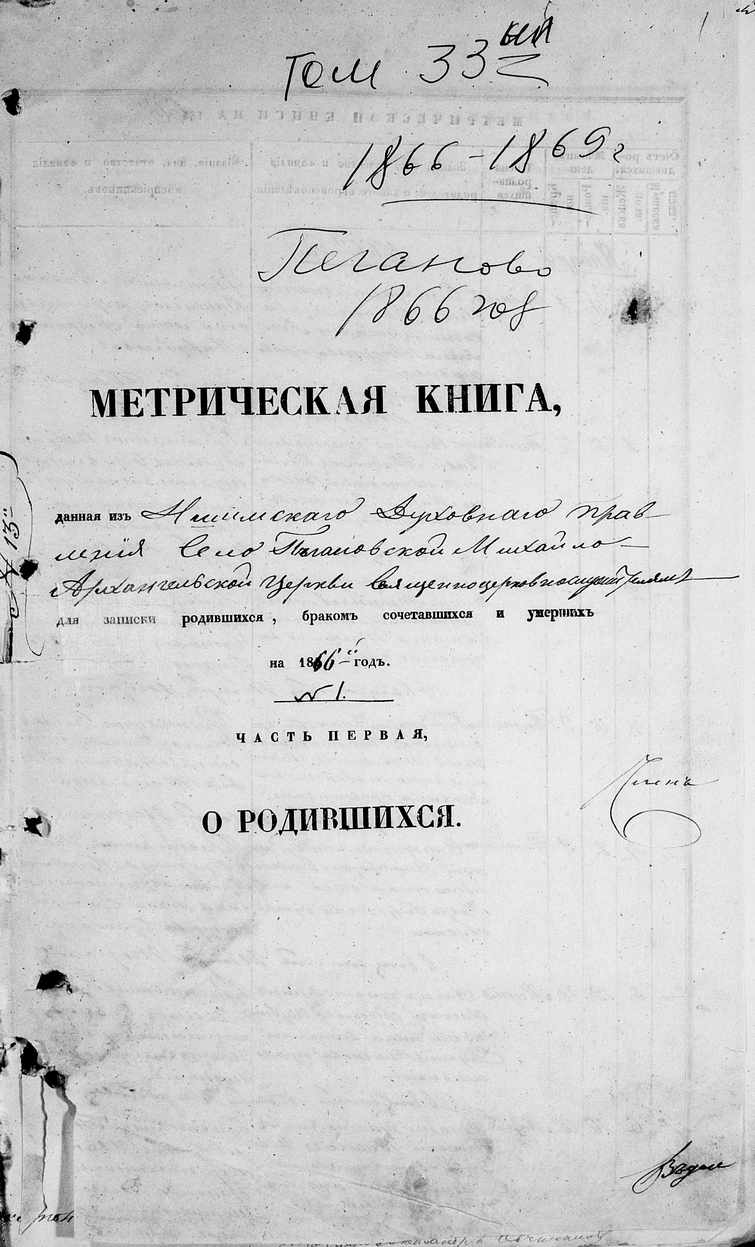 Том 33 ый
1866-1869 г
Пеганово
1866 год
МЕТРИЧЕСКАЯ КНИГА,
данная изъ Ишимскаго Духовнаго прав-
ленія Село Пегановской Михайло-
Архангельской Церкви Священноцерковнослужителямъ
для записки родившихся, бракомъ сочетавшихся и умершихъ
на 1866 годъ.
№ 1.
№ 13
ЧАСТЬ ПЕРВАЯ,
Членъ
О РОДИВШИХСЯ.